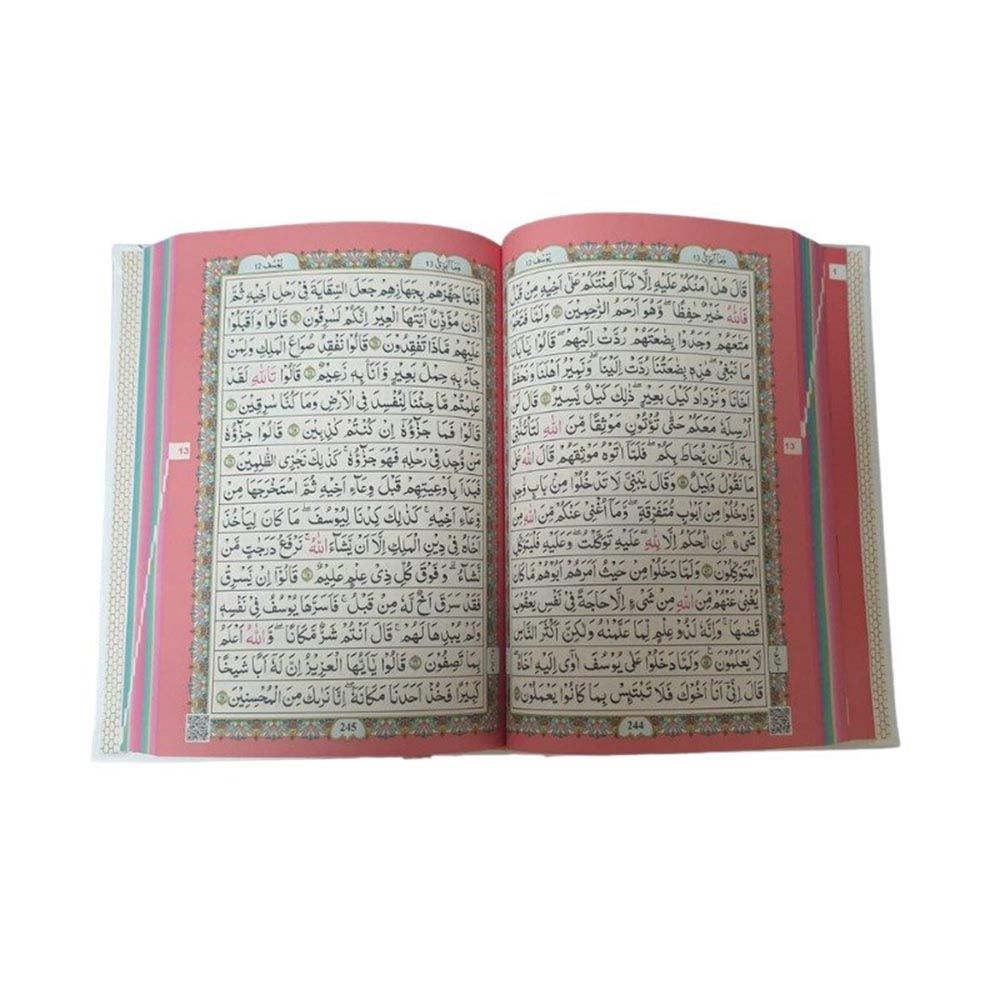 وَمَآ اُبَرِّئُ 13
يُوْسُف 12
قَالَ هَلْ اٰمَنُكُمْ عَلَيْهِ اِلَّا كَمَآ اَمِنْتُكُمْ عَلٰٓى اَخِيْهِ مِنْ قَبْلُ
فَاللّٰهُ خَيْرٌ حٰفِظًا ۖ وَّهُوَ اَرْحَمُ الرّٰحِمِيْنَ ۝ وَلَمَّا فَتَحُوْا
مَتَاعَهُمْ وَجَدُوْا بِضَاعَتَهُمْ رُدَّتْ اِلَيْهِمْ ۗ قَالُوْا يٰٓاَبَانَا
مَا نَبْغِيْ ۗ هٰذِهٖ بِضَاعَتُنَا رُدَّتْ اِلَيْنَا ۚ وَنَمِيْرُ اَهْلَنَا وَنَحْفَظُ
اَخَانَا وَنَزْدَادُ كَيْلَ بَعِيْرٍ ۗ ذٰلِكَ كَيْلٌ يَّسِيْرٌ ۝ قَالَ لَنْ
اُرْسِلَهٗ مَعَكُمْ حَتّٰى تُؤْتُوْنِ مَوْثِقًا مِّنَ اللّٰهِ لَتَأْتُنَّنِيْ
بِهٖٓ اِلَّآ اَنْ يُّحَاطَ بِكُمْ ۚ فَلَمَّآ اٰتَوْهُ مَوْثِقَهُمْ قَالَ اللّٰهُ عَلٰى
مَا نَقُوْلُ وَكِيْلٌ ۝ وَقَالَ يٰبَنِيَّ لَا تَدْخُلُوْا مِنْۢ بَابٍ وَّاحِدٍ
وَّادْخُلُوْا مِنْ اَبْوَابٍ مُّتَفَرِّقَةٍ ۗ وَمَآ اُغْنِيْ عَنْكُمْ مِّنَ اللّٰهِ مِنْ
شَيْءٍ ۗ اِنِ الْحُكْمُ اِلَّا لِلّٰهِ ۗ عَلَيْهِ تَوَكَّلْتُ ۚ وَعَلَيْهِ فَلْيَتَوَكَّلِ
الْمُتَوَكِّلُوْنَ ۝ وَلَمَّا دَخَلُوْا مِنْ حَيْثُ اَمَرَهُمْ اَبُوْهُمْ ۗ مَا كَانَ
يُغْنِيْ عَنْهُمْ مِّنَ اللّٰهِ مِنْ شَيْءٍ اِلَّا حَاجَةً فِيْ نَفْسِ يَعْقُوْبَ
قَضٰىهَا ۗ وَاِنَّهٗ لَذُوْ عِلْمٍ لِّمَا عَلَّمْنٰهُ وَلٰكِنَّ اَكْثَرَ النَّاسِ
لَا يَعْلَمُوْنَ ۝ وَلَمَّا دَخَلُوْا عَلٰى يُوْسُفَ اٰوٰٓى اِلَيْهِ اَخَاهُ
قَالَ اِنِّيْٓ اَنَا۠ اَخُوْكَ فَلَا تَبْتَىِٕسْ بِمَا كَانُوْا يَعْمَلُوْنَ ۝
244
13
1
وَمَآ اُبَرِّئُ 13
يُوْسُف 12
فَلَمَّا جَهَّزَهُمْ بِجَهَازِهِمْ جَعَلَ السِّقَايَةَ فِيْ رَحْلِ اَخِيْهِ ثُمَّ
اَذَّنَ مُؤَذِّنٌ اَيَّتُهَا الْعِيْرُ اِنَّكُمْ لَسٰرِقُوْنَ ۝ قَالُوْا وَاَقْبَلُوْا
عَلَيْهِمْ مَّاذَا تَفْقِدُوْنَ ۝ قَالُوْا نَفْقِدُ صُوَاعَ الْمَلِكِ وَلِمَنْ
جَاۤءَ بِهٖ حِمْلُ بَعِيْرٍ وَّاَنَا۠ بِهٖ زَعِيْمٌ ۝ قَالُوْا تَاللّٰهِ لَقَدْ
عَلِمْتُمْ مَّا جِئْنَا لِنُفْسِدَ فِى الْاَرْضِ وَمَا كُنَّا سٰرِقِيْنَ ۝
قَالُوْا فَمَا جَزَاۤؤُهٗٓ اِنْ كُنْتُمْ كٰذِبِيْنَ ۝ قَالُوْا جَزَاۤؤُهٗ
مَنْ وُّجِدَ فِيْ رَحْلِهٖ فَهُوَ جَزَاۤؤُهٗ ۗ كَذٰلِكَ نَجْزِى الظّٰلِمِيْنَ ۝
فَبَدَاَ بِاَوْعِيَتِهِمْ قَبْلَ وِعَاۤءِ اَخِيْهِ ثُمَّ اسْتَخْرَجَهَا مِنْ
وِّعَاۤءِ اَخِيْهِ ۗ كَذٰلِكَ كِدْنَا لِيُوْسُفَ ۗ مَا كَانَ لِيَأْخُذَ
اَخَاهُ فِيْ دِيْنِ الْمَلِكِ اِلَّآ اَنْ يَّشَاۤءَ اللّٰهُ ۗ نَرْفَعُ دَرَجٰتٍ مَّنْ
نَّشَاۤءُ ۗ وَفَوْقَ كُلِّ ذِيْ عِلْمٍ عَلِيْمٌ ۝ قَالُوْٓا اِنْ يَّسْرِقْ
فَقَدْ سَرَقَ اَخٌ لَّهٗ مِنْ قَبْلُ ۚ فَاَسَرَّهَا يُوْسُفُ فِيْ نَفْسِهٖ
وَلَمْ يُبْدِهَا لَهُمْ ۚ قَالَ اَنْتُمْ شَرٌّ مَّكَانًا ۚ وَاللّٰهُ اَعْلَمُ
بِمَا تَصِفُوْنَ ۝ قَالُوْا يٰٓاَيُّهَا الْعَزِيْزُ اِنَّ لَهٗٓ اَبًا شَيْخًا
كَبِيْرًا فَخُذْ اَحَدَنَا مَكَانَهٗ ۚ اِنَّا نَرٰىكَ مِنَ الْمُحْسِنِيْنَ ۝
245
13